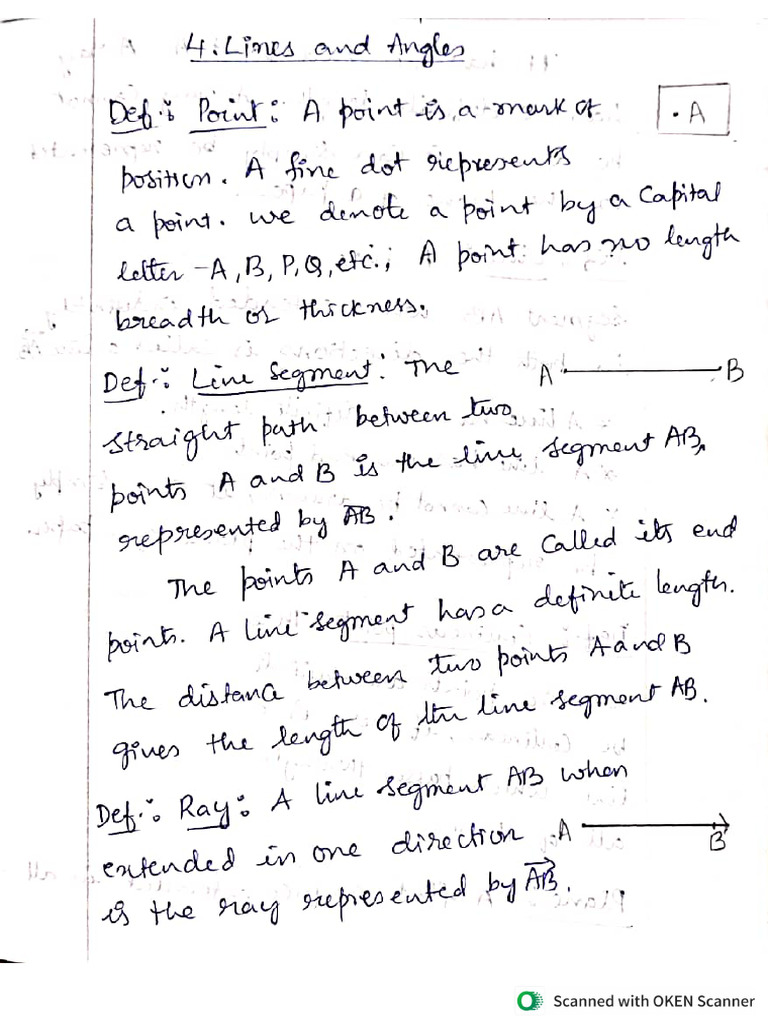 4. Lines and Angles
Def.: Point: A point is a mark of
. A
position. A fine dot represents
a point. we denote a point by a Capital
letter - A, B, P, Q, etc.; A point has no length
breadth or thickness.
Def.: Line Segment: The
A B
straight path between two
points A and B is the line segment AB,
represented by A̅B̅.
The points A and B are Called its end
points. A line segment has a definite length.
The distance between two points A and B
gives the length of the line segment AB.
Def.: Ray: A line segment AB when
extended in one direction
A B
is the ray represented by A͞B⃗.
Scanned with OKEN Scanner